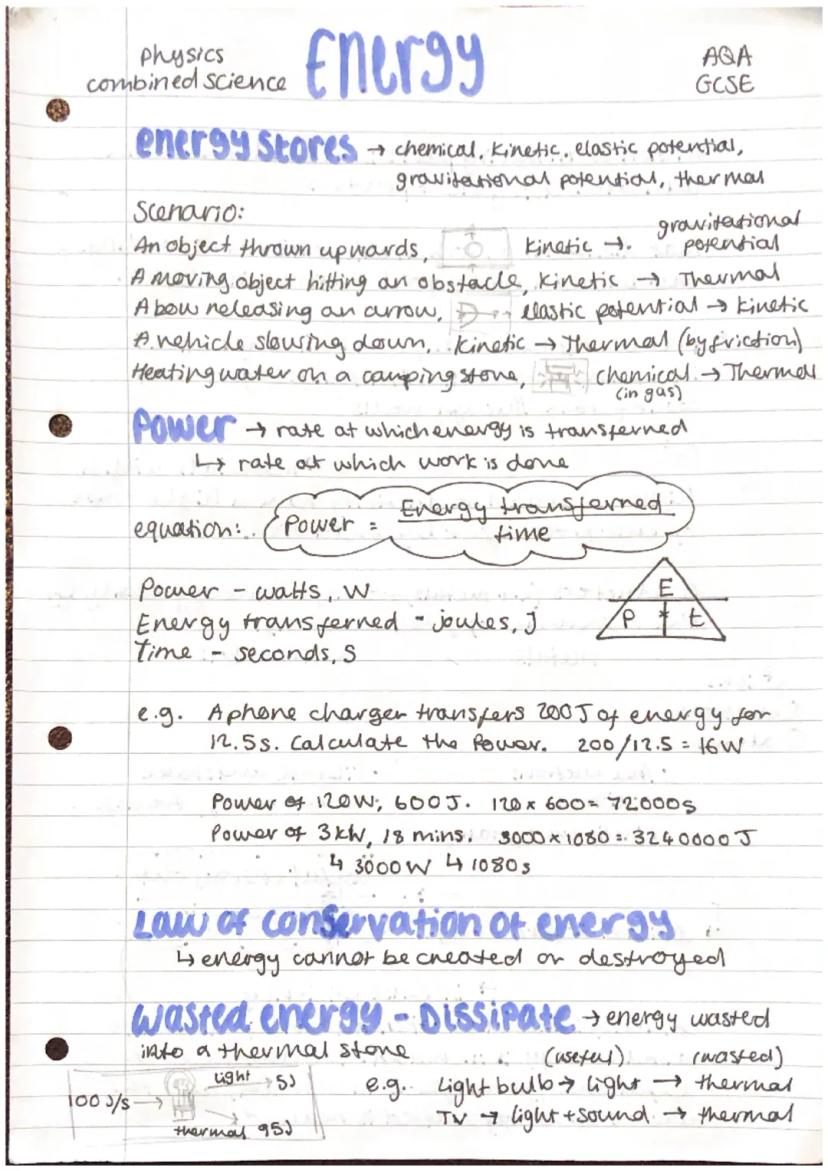 Physics
combined science
Energy
AQA
GCSE
energy stores → chemical, kinetic, elastic potential,
gravitational potential, thermal
Scenario:
An object thrown upwards, kinetic → gravitational potential
A moving object hitting an obstacle, kinetic → Thermal
A bow releasing an arrow, elastic potential → kinetic
A vehicle slowing down, kinetic → Thermal (by friction)
Heating water on a camping stove, chemical → Thermal
(in gas)
Power → rate at which energy is transferred
↳ rate at which work is done
equation: Power = Energy transferred
time
Power - watts, W
Energy transferred - joules, J
Time - seconds, S
E
P * t
e.g. A phone charger transfers 200J of energy for
12.5s. Calculate the Power. 200/12.5 = 16W
Power of 120W, 600J. 120 x 600 = 72000s
Power of 3kW, 18 mins. 3000 x 1080 = 3240000J
↳ 3000W ↳ 1080s
Law of conservation of energy
↳ energy cannot be created or destroyed
Wasted energy - Dissipate → energy wasted
into a thermal store
(useful) (wasted)
100 J/s → light → 5J
thermal 95J
e.g. Light bulb → light → thermal
TV → light + sound → thermal